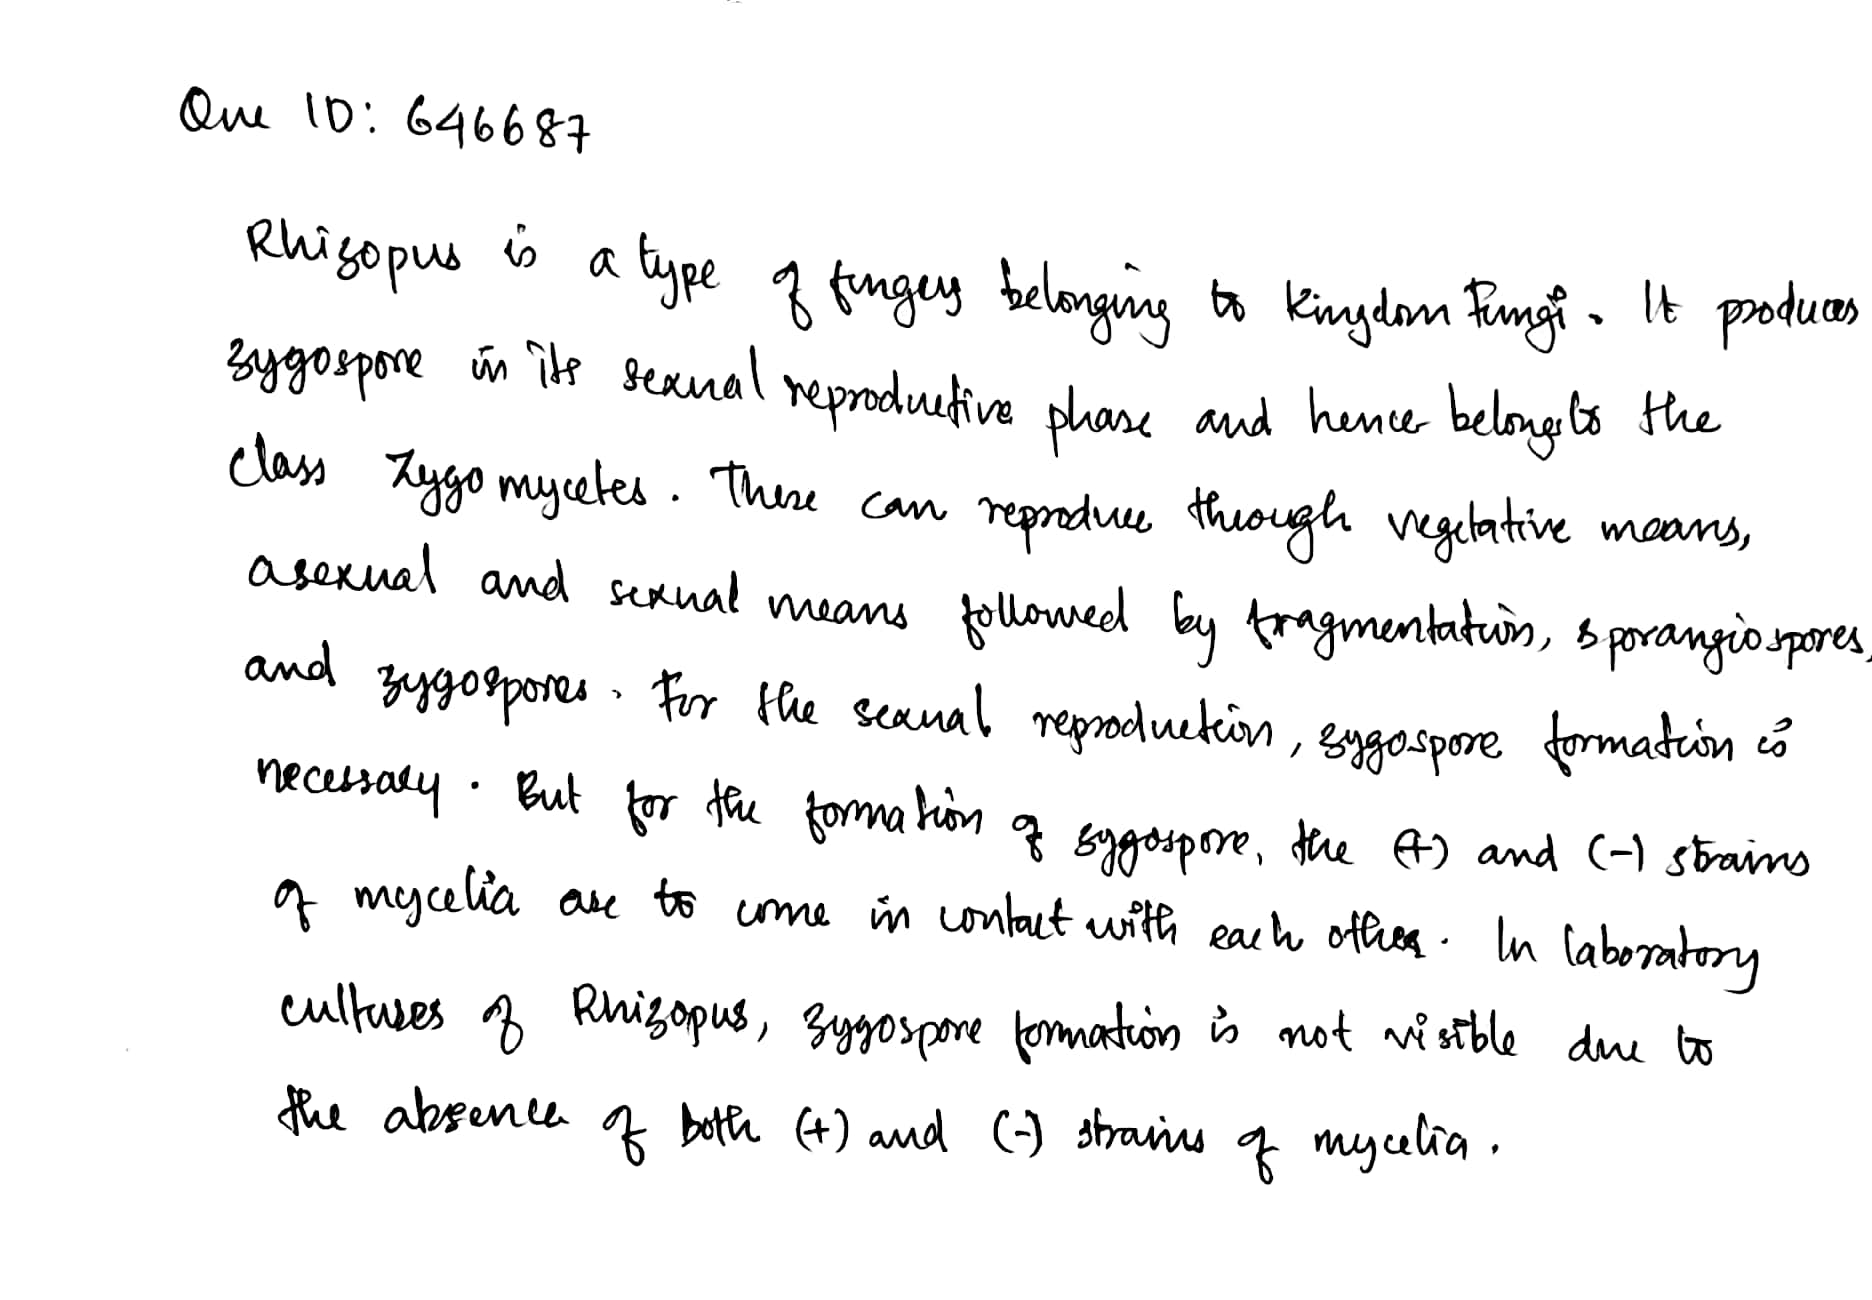 Que ID: 646687
Rhizopus is a type of fungus belonging to kingdom Fungi. It produces
zygospore in its sexual reproductive phase and hence belongs to the
class Zygomycetes. These can reproduce through vegetative means,
asexual and sexual means followed by fragmentation, sporangiospores,
and zygospores. For the sexual reproduction, zygospore formation is
necessary. But for the formation of zygospore, the (+) and (-) strains
of mycelia are to come in contact with each other. In laboratory
cultures of Rhizopus, zygospore formation is not visible due to
the absence of both (+) and (-) strains of mycelia.